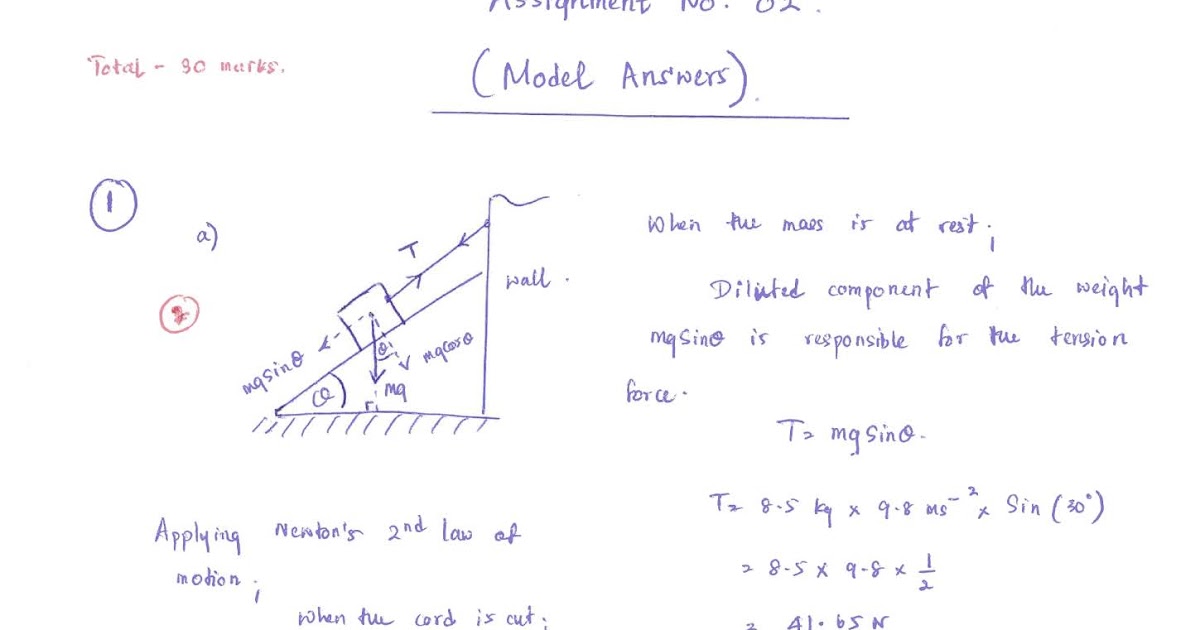 Assignment No. 02.
Total - 30 marks.
(Model Answers).
1
a)
T
wall.
mgsinθ
θ
mgcosθ
mg
θ
When the mass is at rest;
Diluted component of the weight
mgsinθ is responsible for the tension
force.
T= mgsinθ.
T= 8.5 kg x 9.8 ms⁻² x Sin (30°)
= 8.5 x 9.8 x 1/2
= 41.65 N
Applying Newton's 2nd law of
motion;
When the cord is cut;